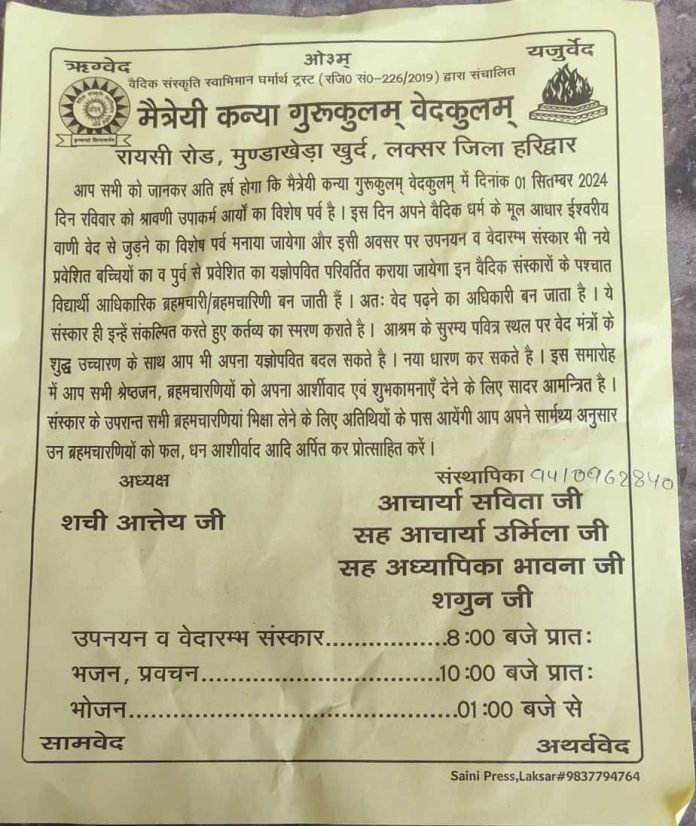 ऋग्वेद
ओ३म्
यजुर्वेद
वैदिक संस्कृति स्वाभिमान धर्मार्थ ट्रस्ट (रजि0 सं0-226/2019) द्वारा संचालित
मैत्रेयी कन्या गुरूकुलम् वेदकुलम्
रायसी रोड, मुण्डाखेड़ा खुर्द, लक्सर जिला हरिद्वार
आप सभी को जानकर अति हर्ष होगा कि मैत्रेयी कन्या गुरूकुलम् वेदकुलम् में दिनांक 01 सितम्बर 2024
दिन रविवार को श्रावणी उपाकर्म आर्यों का विशेष पर्व है । इस दिन अपने वैदिक धर्म के मूल आधार ईश्वरीय
वाणी वेद से जुड़ने का विशेष पर्व मनाया जायेगा और इसी अवसर पर उपनयन व वेदारम्भ संस्कार भी नये
प्रवेशित बच्चियों का व पुर्व से प्रवेशित का यज्ञोपवित परिवर्तित कराया जायेगा इन वैदिक संस्कारों के पश्चात
विद्यार्थी आधिकारिक ब्रहमचारी/ब्रहमचारिणी बन जाती हैं । अतः वेद पढ़ने का अधिकारी बन जाता है । ये
संस्कार ही इन्हें संकल्पित करते हुए कर्तव्य का स्मरण कराते है । आश्रम के सुरम्य पवित्र स्थल पर वेद मंत्रों के
शुद्ध उच्चारण के साथ आप भी अपना यज्ञोपवित बदल सकते है । नया धारण कर सकते है । इस समारोह
में आप सभी श्रेष्ठजन, ब्रहमचारणियों को अपना आर्शीवाद एवं शुभकामनाएँ देने के लिए सादर आमन्त्रित है ।
संस्कार के उपरान्त सभी ब्रहमचारणियां भिक्षा लेने के लिए अतिथियों के पास आयेंगी आप अपने सार्मथ्य अनुसार
उन ब्रहमचारणियों को फल, धन आशीर्वाद आदि अर्पित कर प्रोत्साहित करें ।
अध्यक्ष
शची आत्तेय जी
संस्थापिका 9410962840
आचार्या सविता जी
सह आचार्या उर्मिला जी
सह अध्यापिका भावना जी
शगुन जी
उपनयन व वेदारम्भ संस्कार................8:00 बजे प्रातः
भजन, प्रवचन................................10:00 बजे प्रातः
भोजन............................................01:00 बजे से
सामवेद
अथर्ववेद
Saini Press,Laksar#9837794764